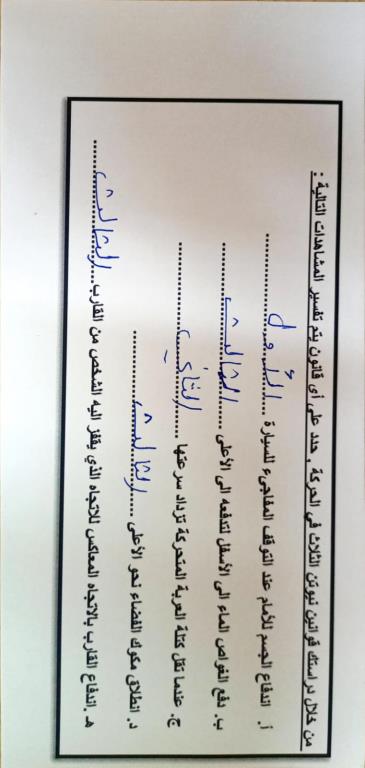 من خلال دراستك قوانين نيوتن الثلاث في الحركة . حدد على أى قانون يتم تفسير المشاهدات التالية :
أ. اندفاع الجسم للأمام عند التوقف المفاجىء للسيارة .... الأول ....................
ب. دفع الغواص الماء الى الأسفل لتدفعه الى الأعلى ..... الثالث ....................
ج. عندما تقل كتلة العربة المتحركة تزداد سرعتها ..... الثاني ....................
د. انطلاق مكوك الفضاء نحو الأعلى ..... الثالث ....................
هـ. اندفاع القارب بالاتجاه المعاكس للاتجاه الذي يقفز اليه الشخص من القارب.... الثالث ..........